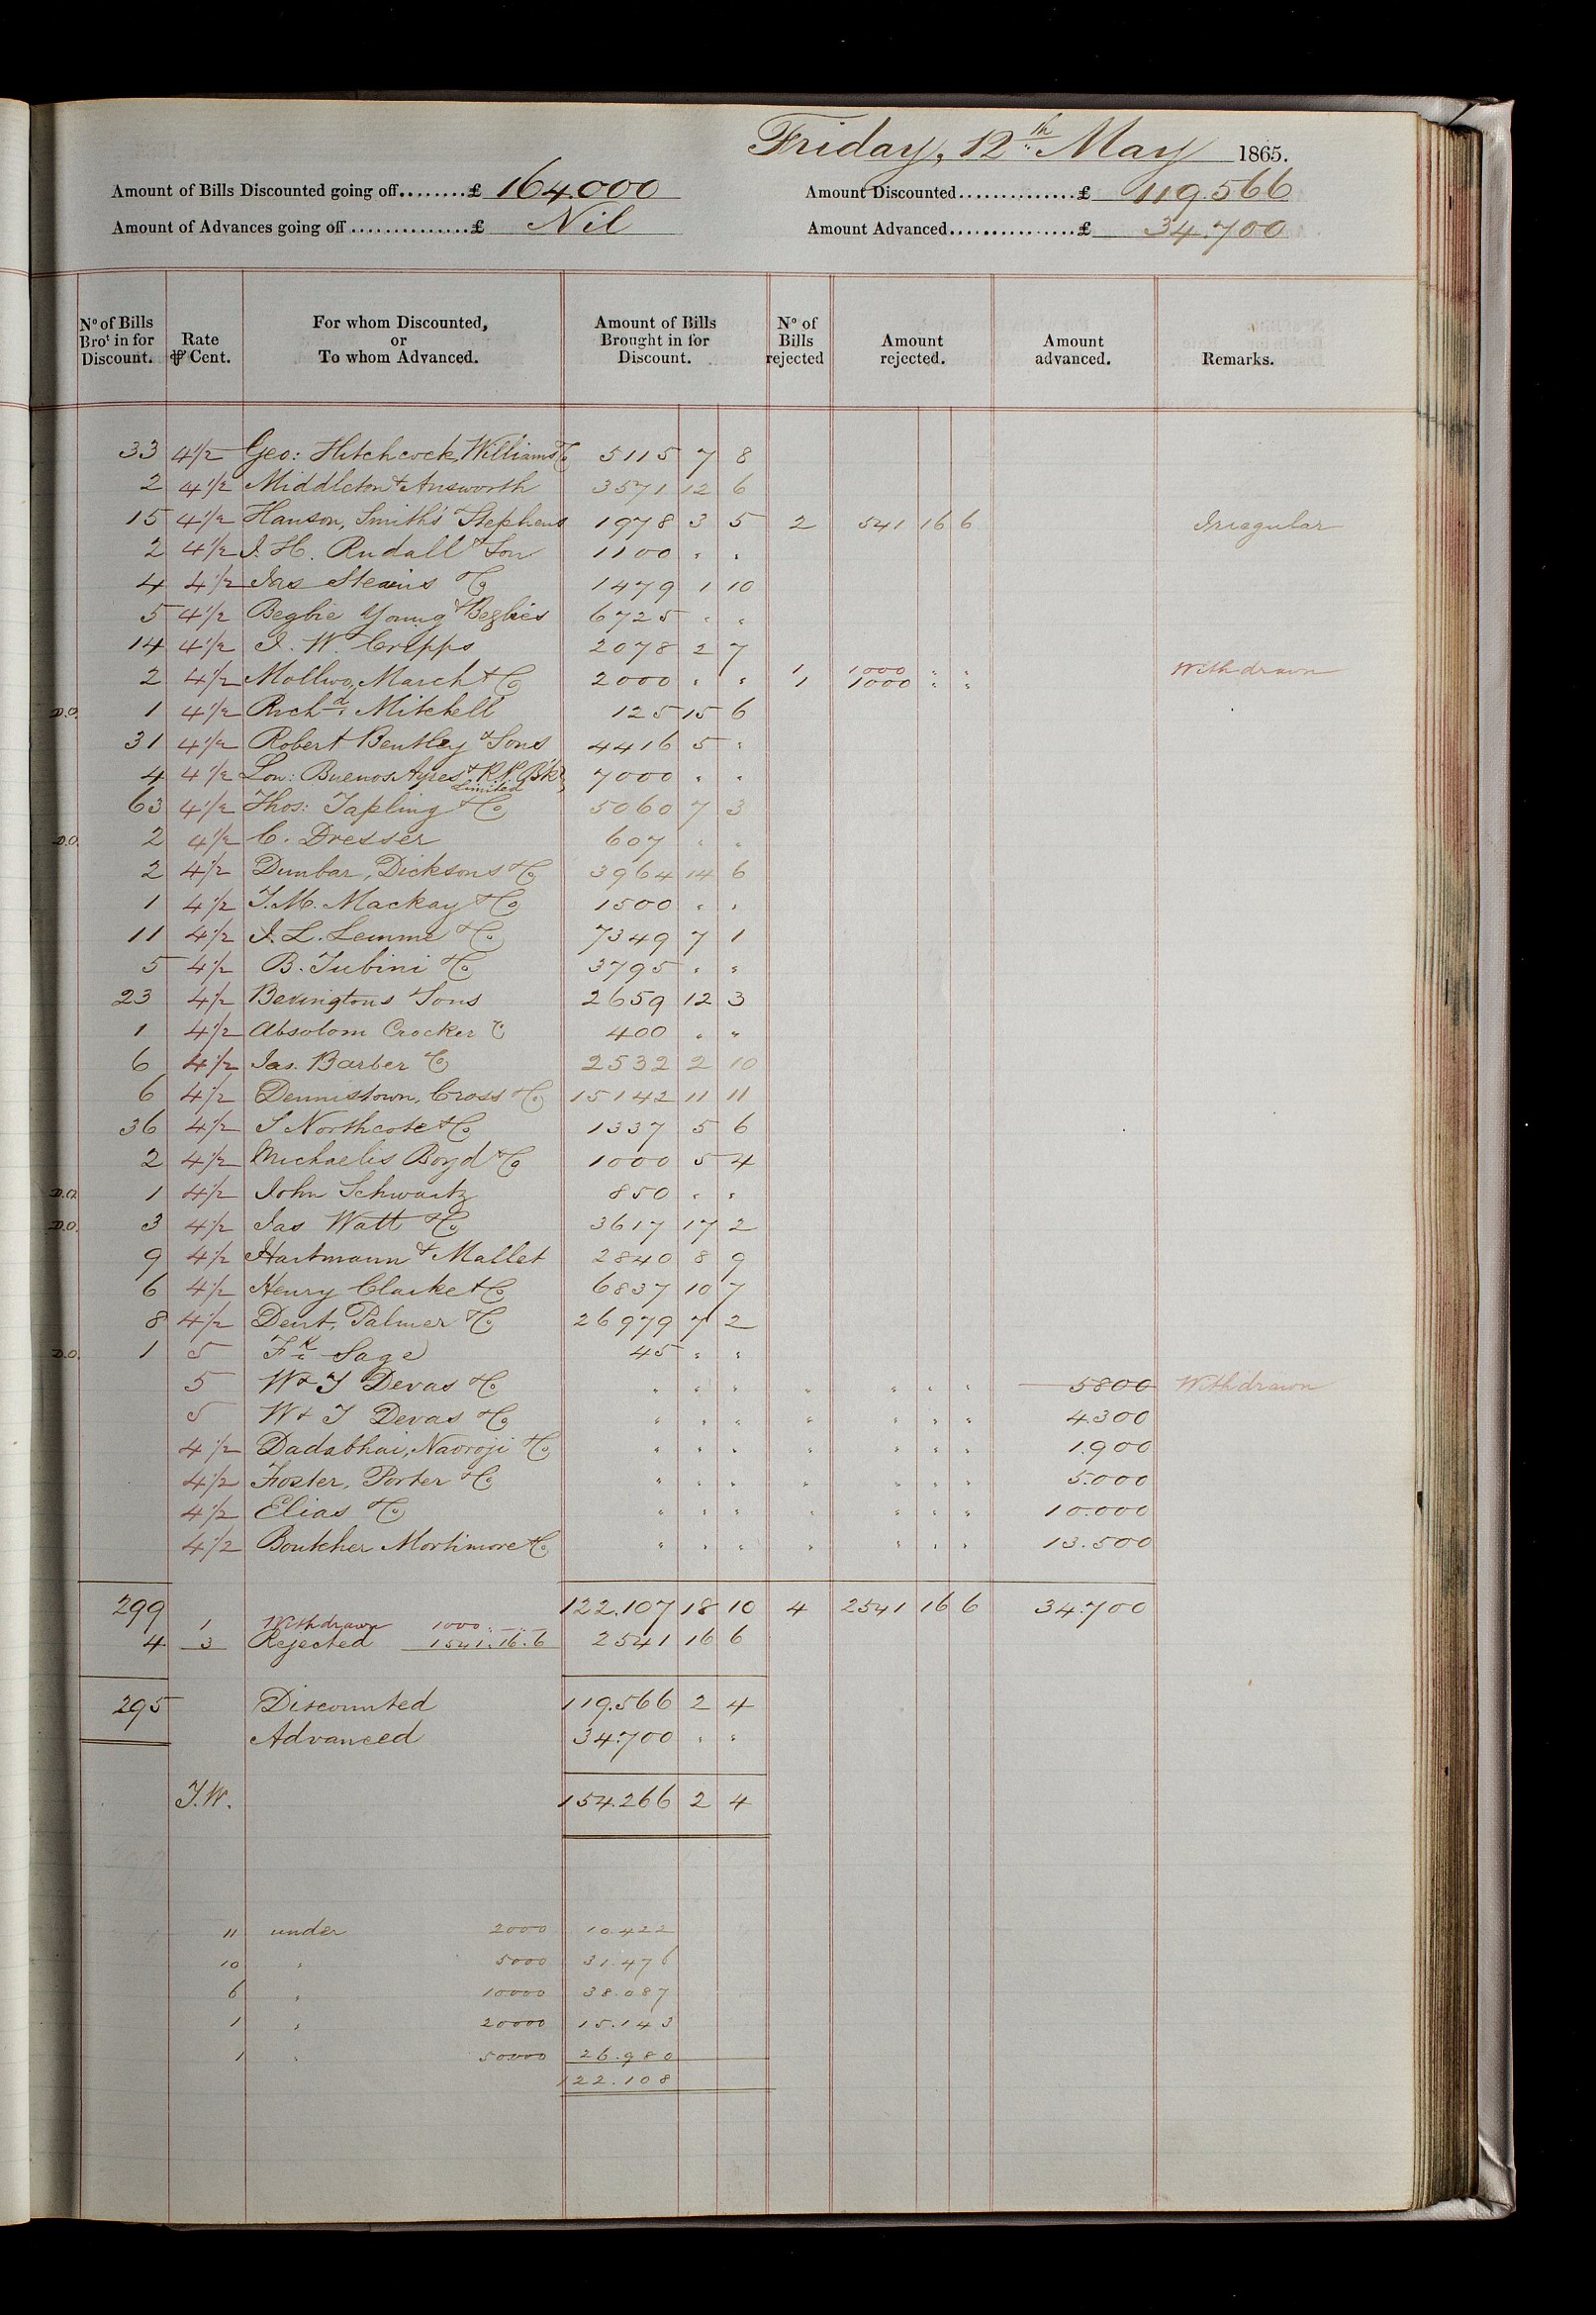 Friday, 12th May 1865.
Amount of Bills Discounted going off........£ 164.000 Amount Discounted..............£ 119.566
Amount of Advances going off ..............£ Nil Amount Advanced...............£ 34.700
No of Bills Brot in for Discount. Rate ⅌ Cent. For whom Discounted, or To whom Advanced. Amount of Bills Brought in for Discount. No of Bills rejected Amount rejected. Amount advanced. Remarks.
33 4½ Geo: Hitchcock, Williams & Co 5115 7 8
2 4½ Middleton & Answorth 3571 12 6
15 4½ Hanson, Smith's & Stephens 1978 3 5 2 541 16 6 Irregular
2 4½ J. H. Rudall & Son 1100 " "
4 4½ Jas Steains & Co 1479 1 10
5 4½ Begbie Young & Begbies 6725 " "
14 4½ J. W. Cripps 2078 2 7
1 1000 " " Withdrawn
2 4½ Mollwo, March & Co 2000 " " 1 1000 " "
D.O. 1 4½ Richd. Mitchell 125 15 6
31 4½ Robert Bentley & Sons 4416 5 "
4 4½ Lon: Buenos Ayres & R.P. Bk Limited 7000 " "
63 4½ Thos: Tapling & Co 5060 7 3
D.O. 2 4½ C. Dresser 607 " "
2 4½ Dunbar, Dicksons & Co 3964 14 6
1 4½ T. M. Mackay & Co 1500 " "
11 4½ J. L. Lemme & Co 7349 7 1
5 4½ B. Tubini & Co 3795 " "
23 4½ Bevingtons & Sons 2659 12 3
1 4½ Absolom Crocker & Co 400 " "
6 4½ Jas. Barber & Co 2532 2 10
6 4½ Dennistown, Cross & Co 15142 11 11
36 4½ S Northcote & Co 1337 5 6
2 4½ Michaelis Boyd & Co 1000 5 4
D.O. 1 4½ John Schwartz 850 " "
D.O. 3 4½ Jas Watt & Co 3617 17 2
9 4½ Hartmann & Mallet 2840 8 9
6 4½ Henry Clarke & Co 6837 10 7
8 4½ Dent, Palmer & Co 26979 7 2
D.O. 1 5 Fk Sage 45 " "
5 W & T Devas & Co " " " " " " " 5800 Withdrawn
5 W & T Devas & Co " " " " " " " 4.300
4½ Dadabhai, Naoroji & Co " " " " " " 1.900
4½ Foster, Porter & Co " " " " " " " 5.000
4½ Elias & Co " " " " " " " 10.000
4½ Boutcher Mortimore & Co " " " " " " " 13.500
299 122.107 18 10 4 2541 16 6 34.700
1 Withdrawn 1000. -. -
4 3 Rejected 1541. 16. 6 2541 16 6
295 Discounted 119.566 2 4
Advanced 34.700 " "
T.W. 154.266 2 4
11 under 2000 10.422
10 " 5000 31.476
6 " 10000 38.087
1 " 20000 15.143
1 " 50000 26.980
122.108